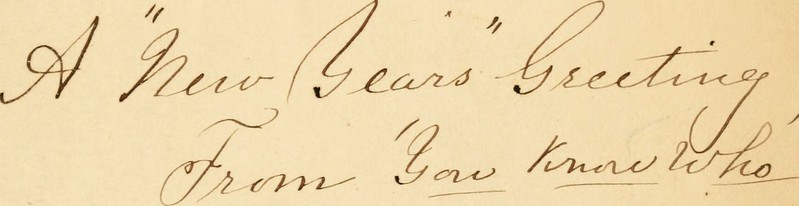 A "New Years" Greeting,
From 'You Know Who'